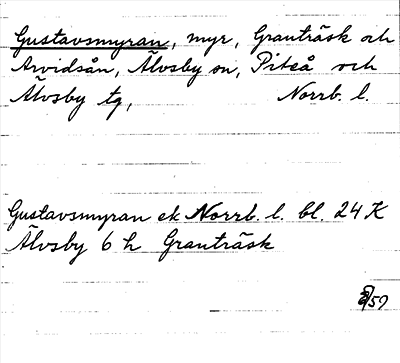 Gustavsmyran, myr, Granträsk och
Arvidsån, Älvsby sn, Piteå och
Älvsby tg, Norrb. l.
Gustavsmyran ek Norrb. l. bl. 24 K
Älvsby 6 h Granträsk
/59